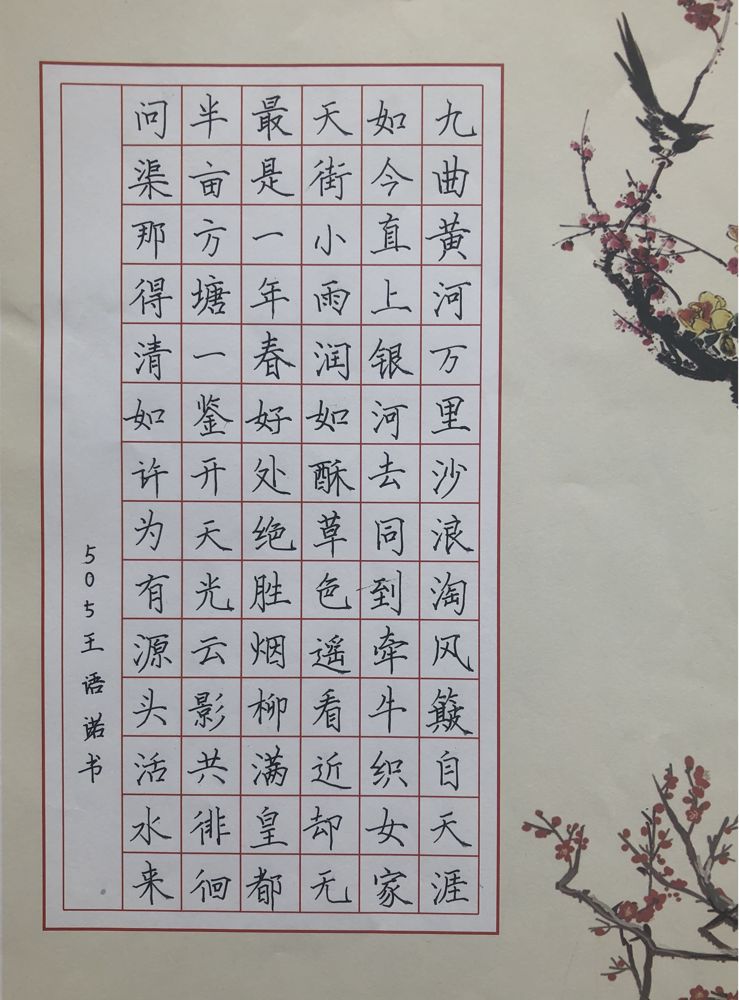 九曲黄河万里沙浪淘风簸自天涯
如今直上银河去同到牵牛织女家
天街小雨润如酥草色遥看近却无
最是一年春好处绝胜烟柳满皇都
半亩方塘一鉴开天光云影共徘徊
问渠那得清如许为有源头活水来
505王语诺书